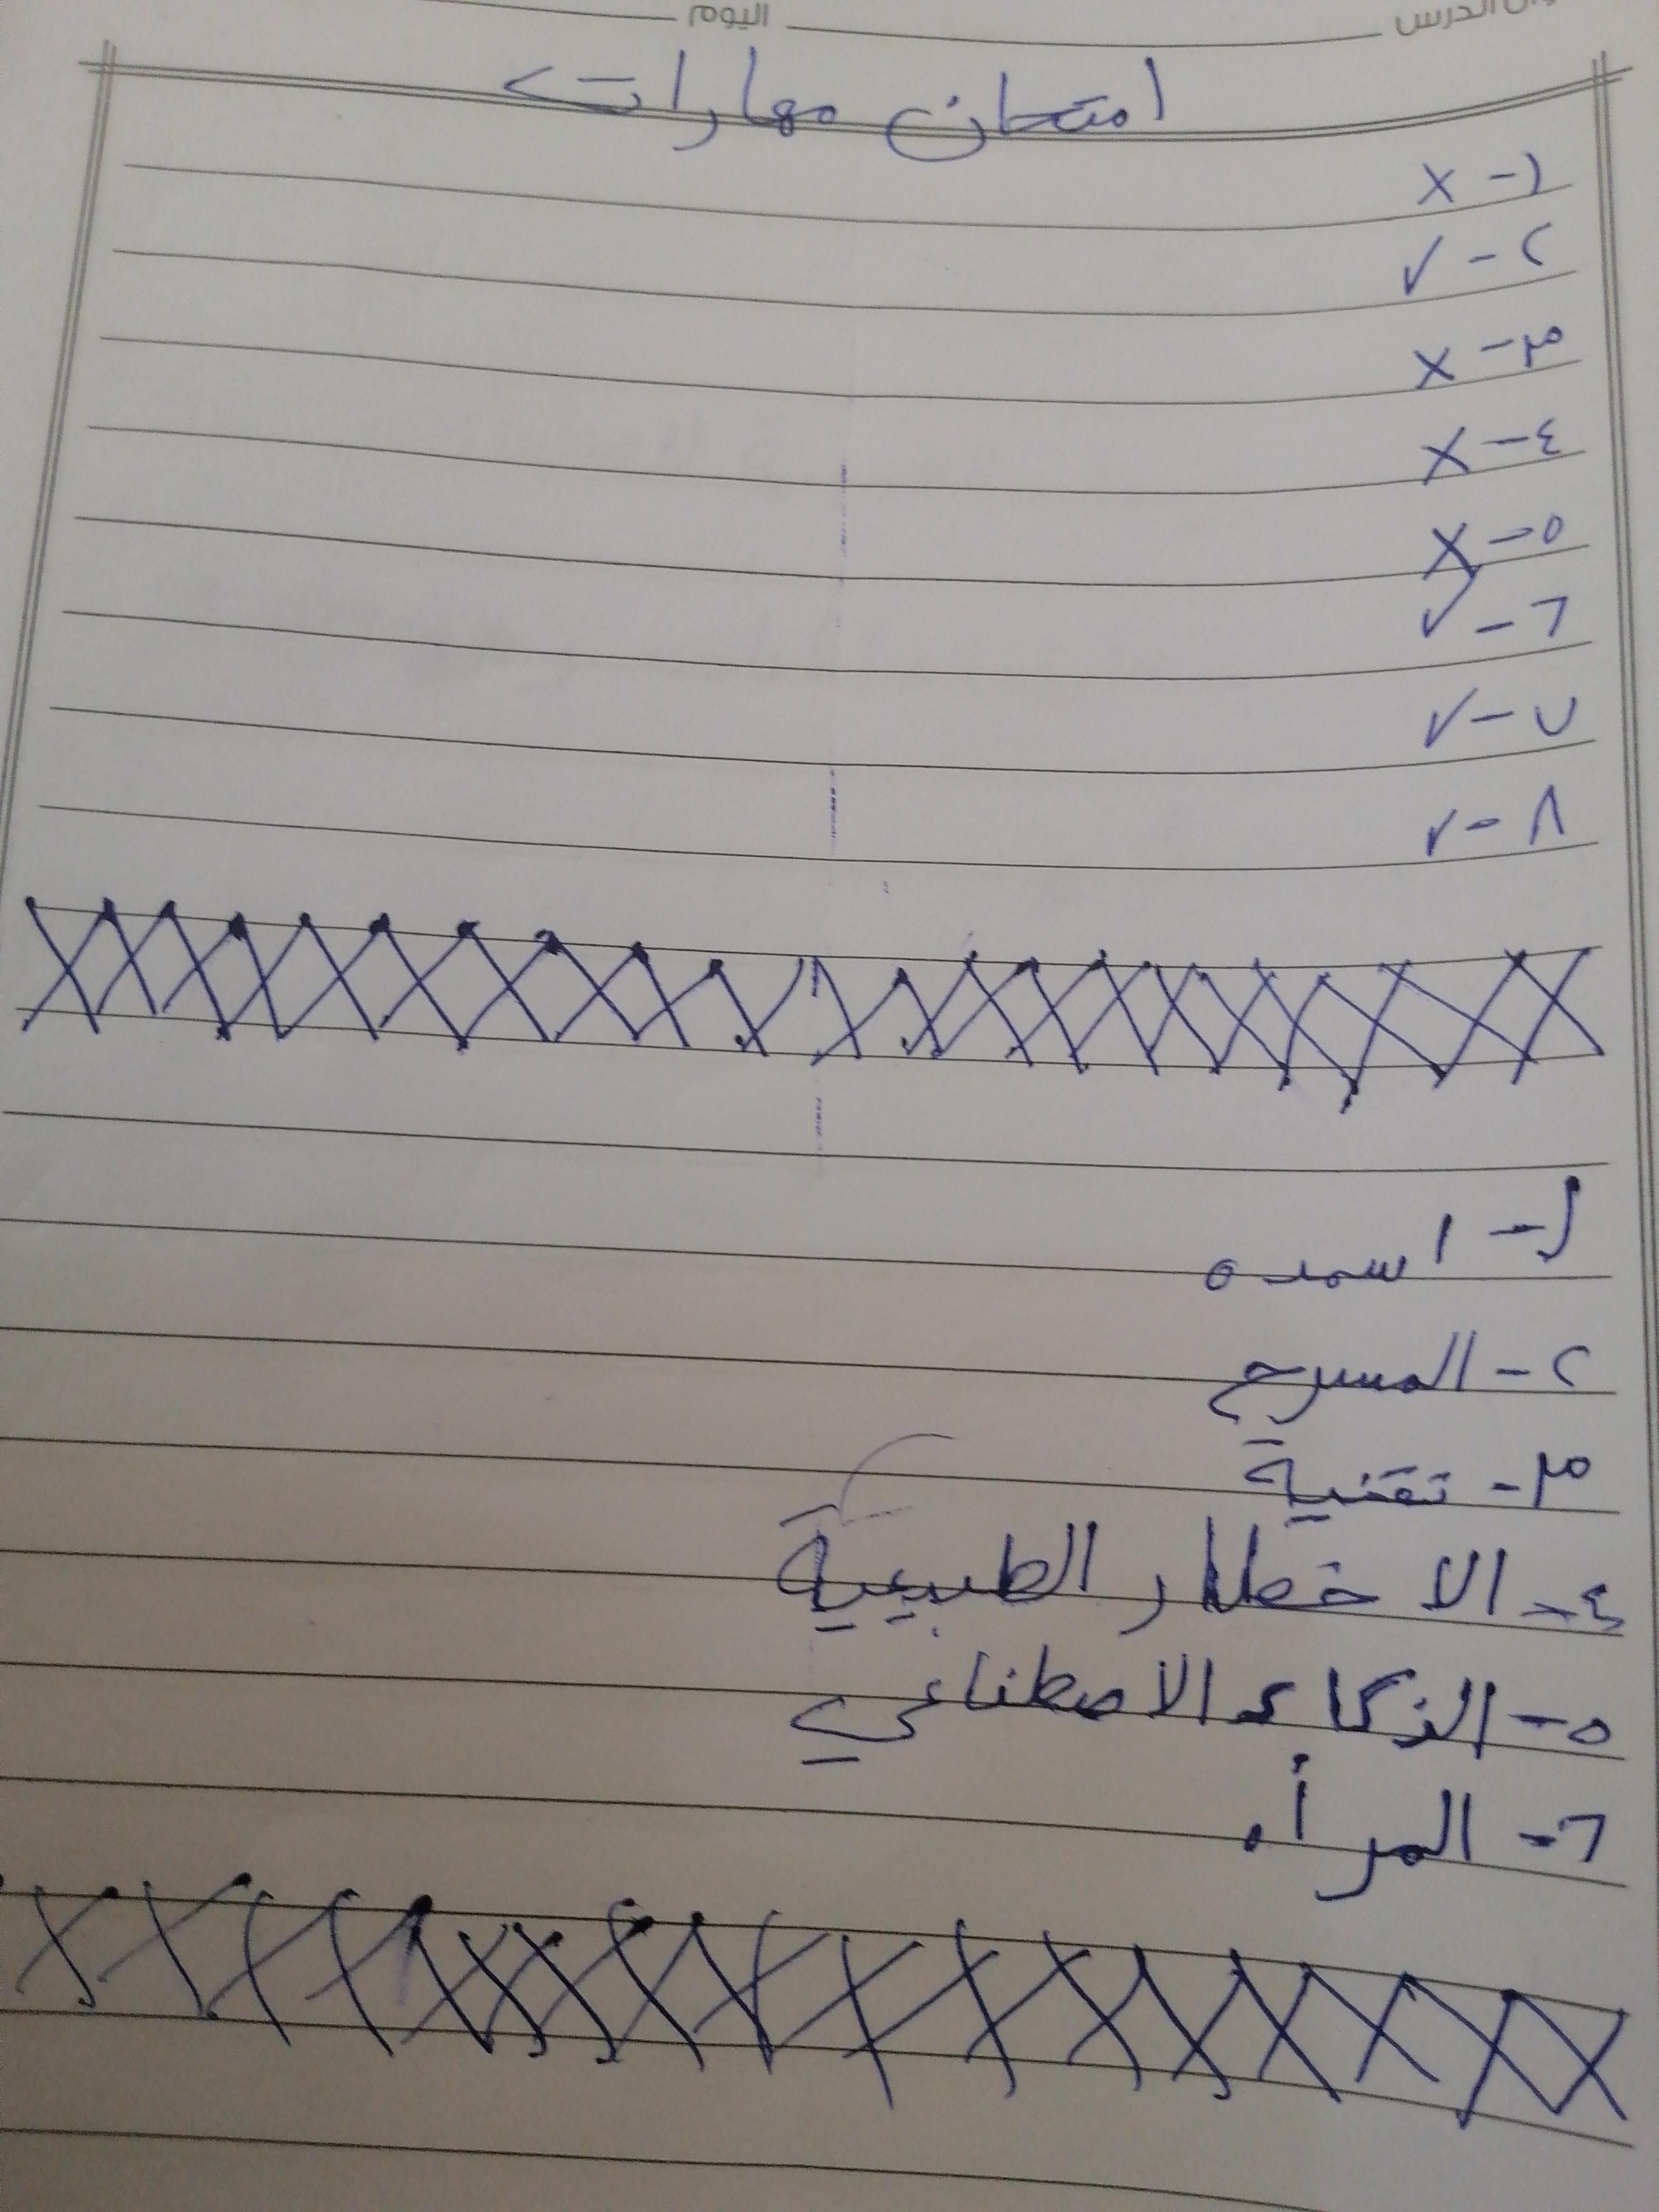 الدرس اليوم
امتحان مهارات
١- X
٢- ✓
٣- X
٤- X
٥- X
٦- ✓
٧- ✓
٨- ✓
١- اسمده
٢- المسرح
٣- تقنية
٤- الاخطار الطبيعية
٥- الذكاء الاصطناعي
٦- المرأه